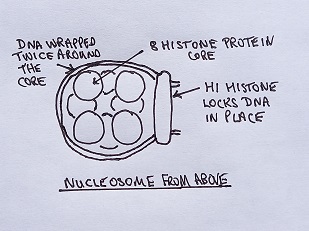 DNA WRAPPED
TWICE AROUND
THE
CORE
8 HISTONE PROTEIN
CORE
H1 HISTONE
LOCKS DNA
IN PLACE
NUCLEOSOME FROM ABOVE